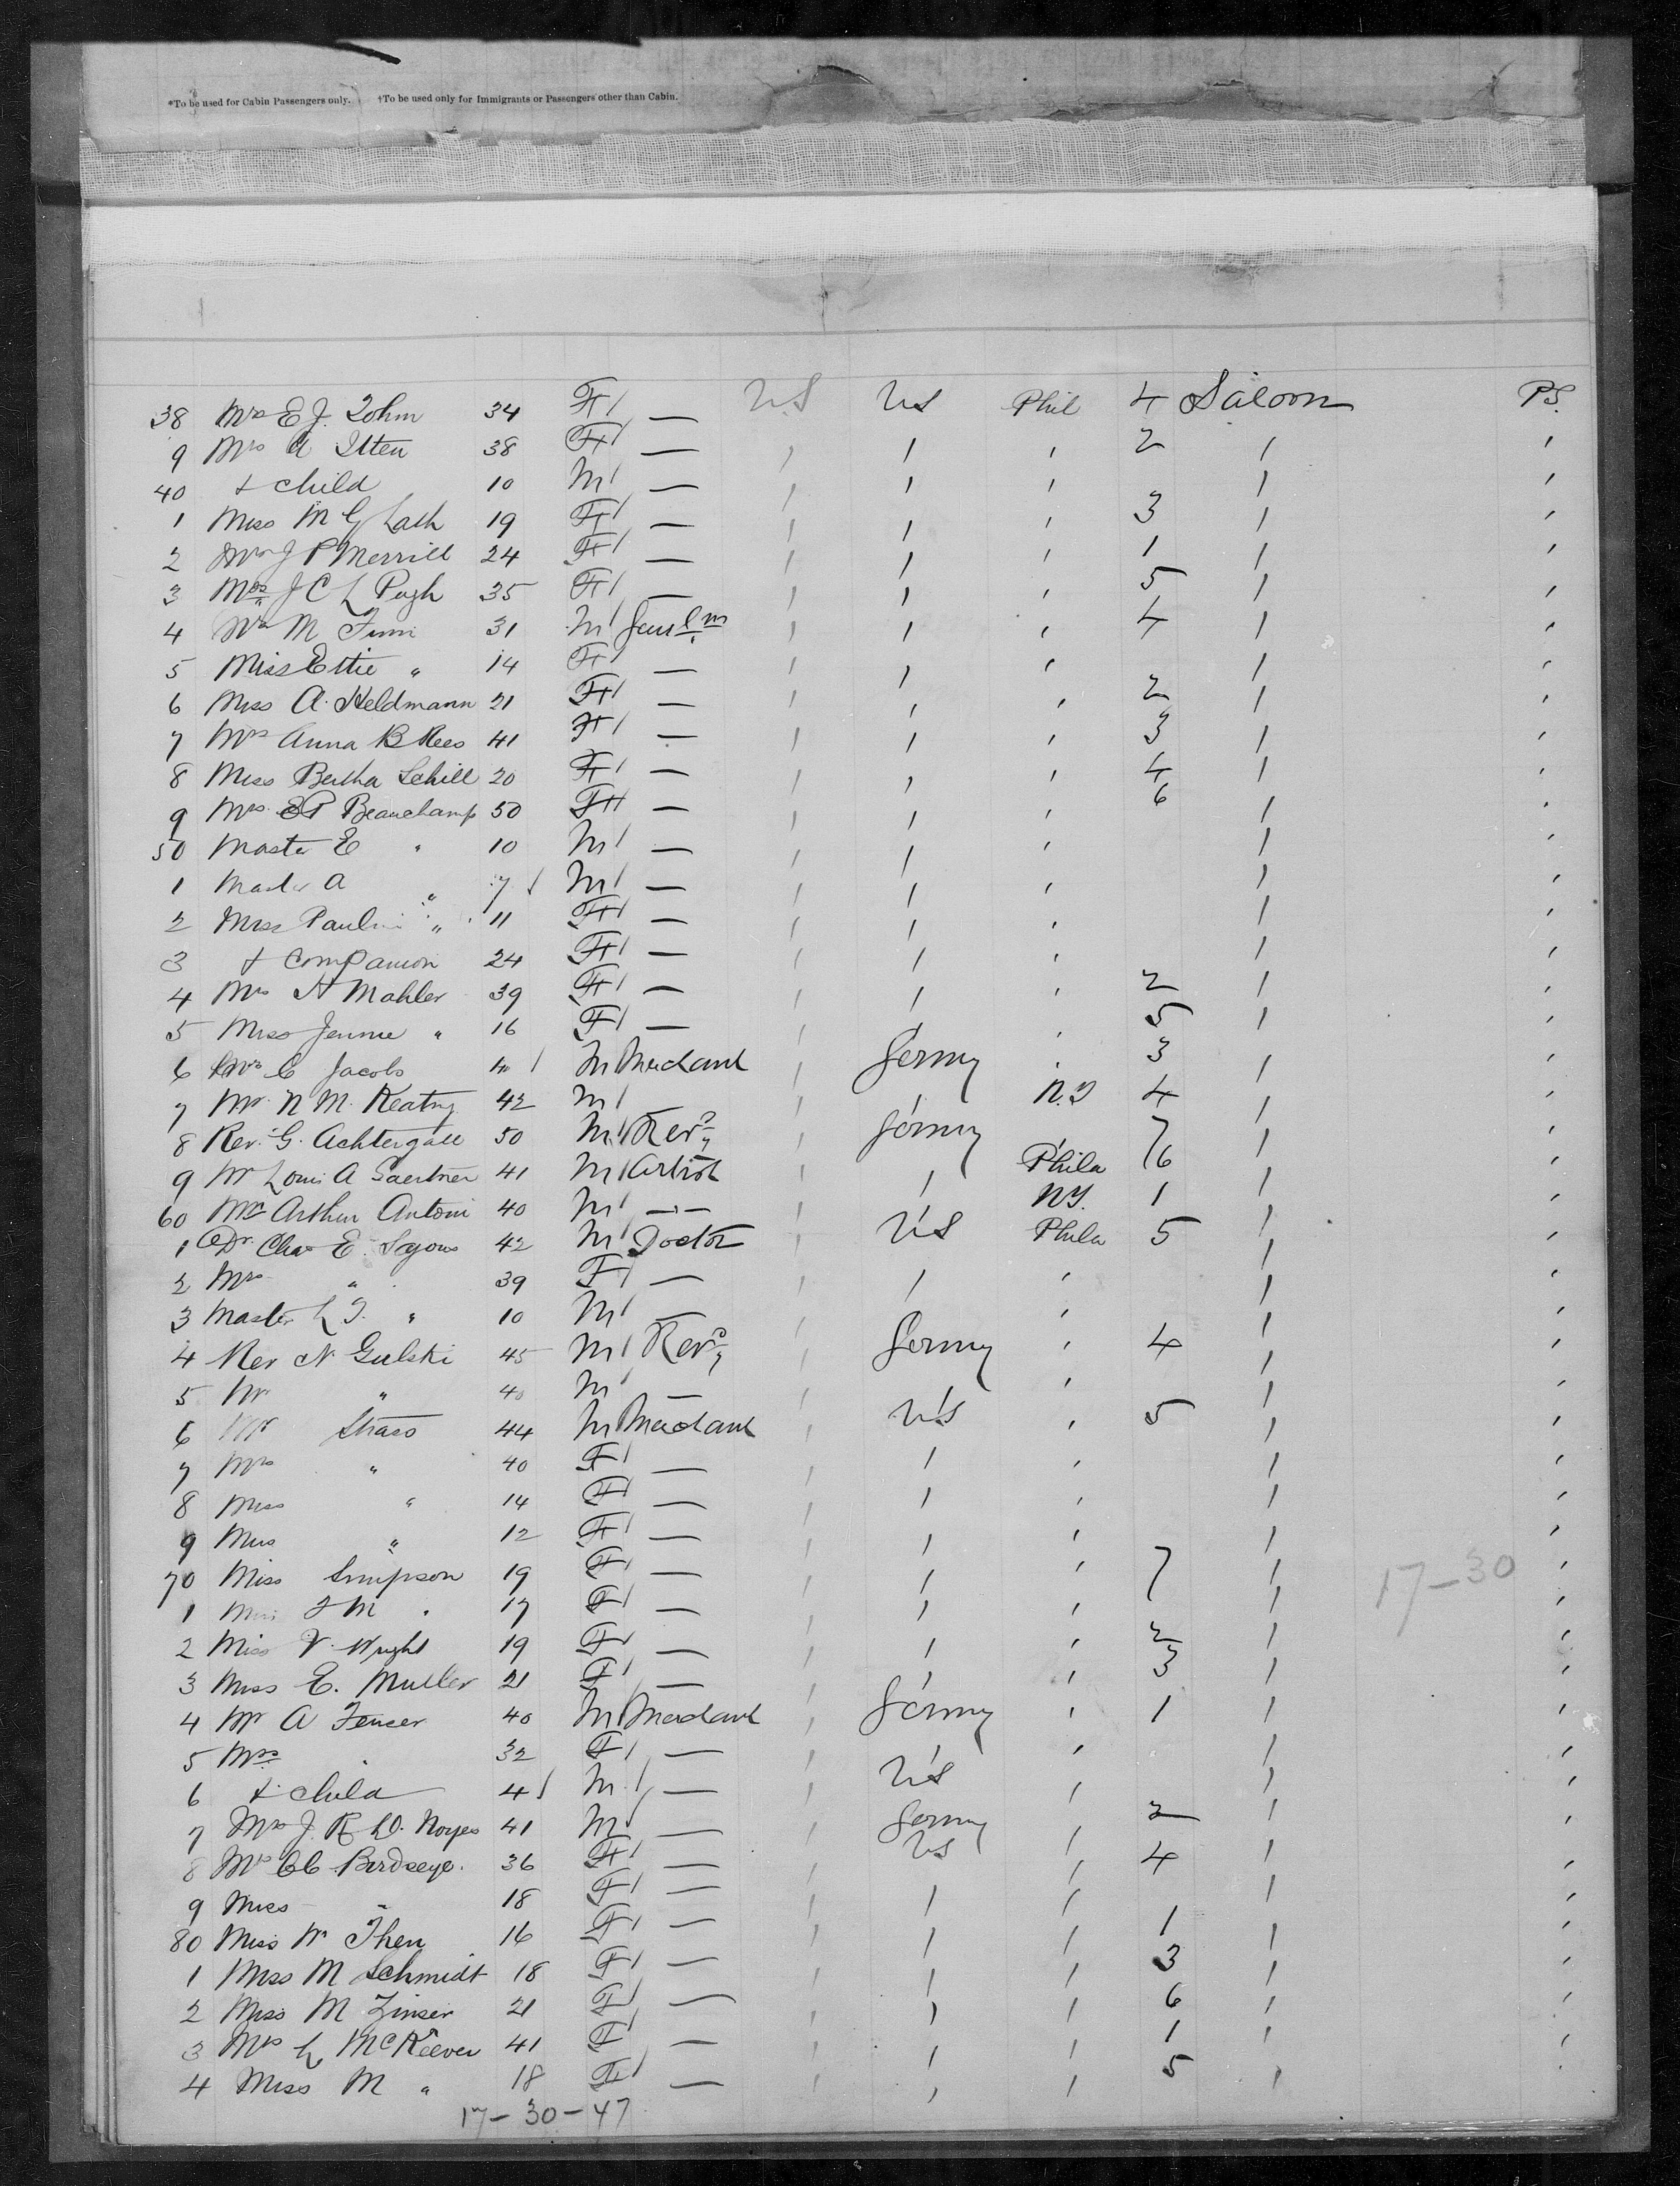 *To be used for Cabin Passengers only. †To be used only for Immigrants or Passengers other than Cabin.
38 Mrs E J. 34 F — US US Phil 4 Saloon P.S.
9 Mrs A Itten 38 F — " " " 2 " "
40 + child 10 M — " " " " "
1 Miss M G Lath 19 F — " " " 3 " "
2 Mrs J P Merrill 24 F — " " " 1 " "
3 Mrs J C L Pugh 35 F — " " " 5 " "
4 M 31 M " " " 4 " "
5 Miss Ettie " 14 F — " " " " "
6 Miss A. Heldmann 21 F — " " " 2 " "
7 Mrs Anna B Rees 41 F — " " " 3 " "
8 Miss Bertha Schill 20 F — " " " 4 " "
9 Mrs E P Beauchamp 50 F — " " " 6 " "
50 Master E " 10 M — " " " " "
1 Master A " 7 M — " " " " "
2 Miss Paulin " 11 F — " " " " "
3 + Companion 24 F — " " " " "
4 Mrs H Mahler 39 F — " " " 2 " "
5 Miss Jennie " 16 F — " " " 5 " "
6 C Jacobs M Merchant " Germy " 3 " "
7 Mr. N. M. Keatng 42 M " " N.Y 4 " "
8 Rev. G. Achtergall 50 M Revd " Germy " 7 " "
9 Mr Louis A Gaertner 41 M Artist " " Phila 6 " "
60 Mr Arthur Antoni 40 M — " " NY. 1 " "
1 Dr. Chas E. Sajous 42 M Doctor " US Phila 5 " "
2 Mrs " 39 F — " " " " "
3 Master L T. " 10 M — " " " " "
4 Rev N Gulski 45 M Revd " Germy " 4 " "
5 Mr " 40 M — " " " " "
6 Mr Strass 44 M Merchant " US " 5 " "
7 Mrs " 40 F — " " " " "
8 Miss " 14 F — " " " " "
9 Miss " 12 F — " " " " "
70 Miss Simpson 19 F — " " " 7 " 17-30 "
1 Miss F M " 17 F — " " " " "
2 Miss V. Wright 19 F — " " " 2 " "
3 Miss E. Muller 21 F — " " " 3 " "
4 Mr A Fenser 40 M Merchant " Germy " 1 " "
5 Mrs " 32 F — " " " " "
6 + child 4 M — " US " " "
7 J. R. D. Noyes 41 M — " Germy " 2 " "
8 Mrs C C Birdseye. 36 F — " US " 4 " "
9 Miss " 18 F — " " " " "
80 Miss W Then 16 F — " " " 1 " "
1 Miss M Schmidt 18 F — " " " 3 " "
2 Miss M Zinser 21 F — " " " 6 " "
3 Mrs L McKeever 41 F — " " " 1 " "
4 Miss M " 18 F — " " " 5 " "
17-30-47